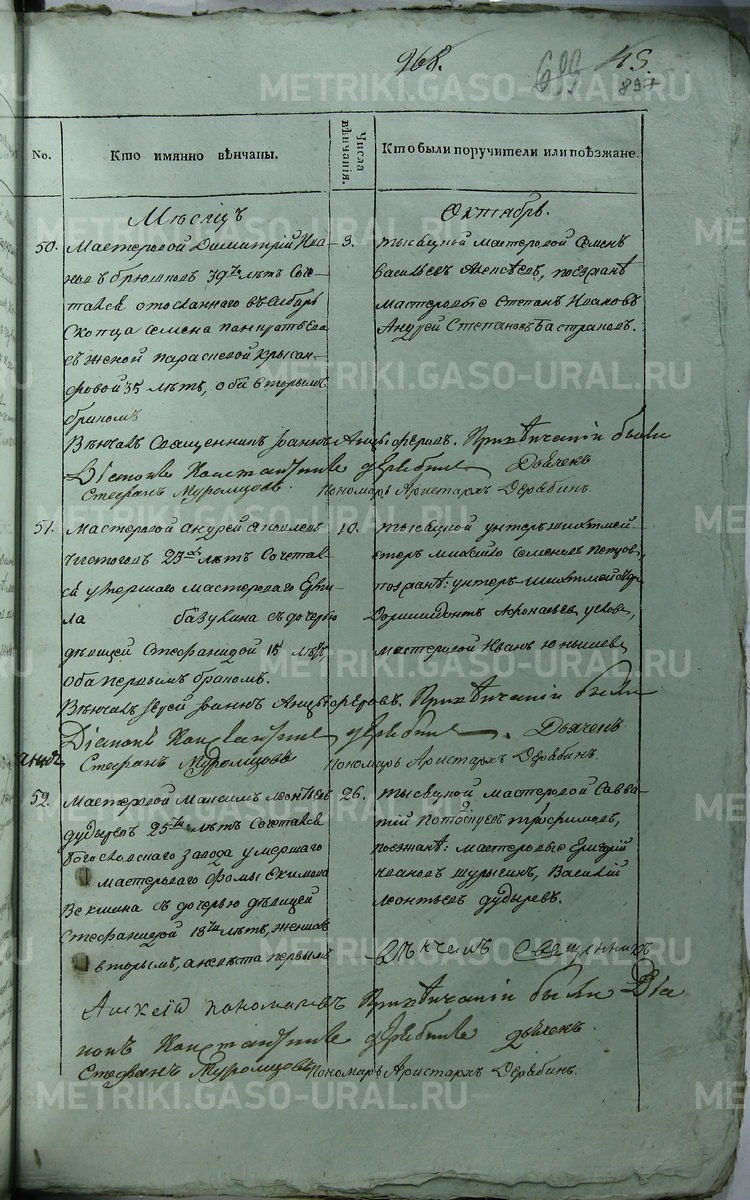 968.
699
45.
897
No.
Кто имянно вѣнчаны.
Числа вѣнчанія.
Кто были поручители или поѣзжане.
Мѣсяцъ
Октябрь.
50. Мастеровой Димитрій Ива-
новъ 39ти лѣтъ соче-
тался отосланнаго въ Сибирь
скопца Семена
съ женой Параскевой Хрисан-
фовой 35 лѣтъ, оба вторымъ
бракомъ
3. тысяцкой мастеровой Семенъ
Васильевъ Алексѣевъ, поезжанѣ
мастеровые Степанъ Ивановъ
Андрей Степановъ Бастраковъ.
Вѣнчалъ Священникъ Іоаннъ Анцыферовъ. При вѣнчаніи были
Діаконъ Константинъ Дерябинъ Дьячекъ
Стефанъ Муромцовъ. Пономарь Аристархъ Дерябинъ.
51. Мастеровой Андрей Яковлевъ
Чистоговъ 23хъ лѣтъ сочетал-
ся умершаго мастероваго
ла базукина съ дочерью
дѣвицей Стефанидой 15 лѣтъ,
оба первымъ бракомъ.
10. тысяцкой унтеръ шихтмей-
стеръ Михайло Семеновъ Петровъ,
поезжанѣ: унтеръ-шихтмейстеръ
Доримидонтъ Афонасьевъ
мастеровой Иванъ Юнышевъ
Вѣнчалъ Іерей Іоаннъ Анцыферовъ. При вѣнчаніи были
Діаконъ Константинъ Дерябинъ. Дьячекъ
Стефанъ Муромцовъ Пономарь Аристархъ Дерябинъ.
52. Мастеровой Максимъ Леонтьевъ
дудыревъ 25ти лѣтъ сочетался
Богословскаго завода умершаго
мастероваго Фомы Екимова
Векшина съ дочерью дѣвицей
Стефанидой 18ти лѣтъ, женихъ
вторымъ, а невѣста первымъ
26. тысяцкой мастеровой Савва-
тій Трофимовъ,
поезжанѣ: мастеровые Григорій
Ивановъ Шурыгинъ, Василій
Леонтьевъ дудыревъ.
Вѣнчалъ Священникъ
Алексій Пономаревъ При вѣнчаніи были Діа
конъ Константинъ Дерябинъ дьячекъ.
Стефанъ Муромцовъ Пономарь Аристархъ Дерябинъ.
METRIKI.GASO-URAL.RU